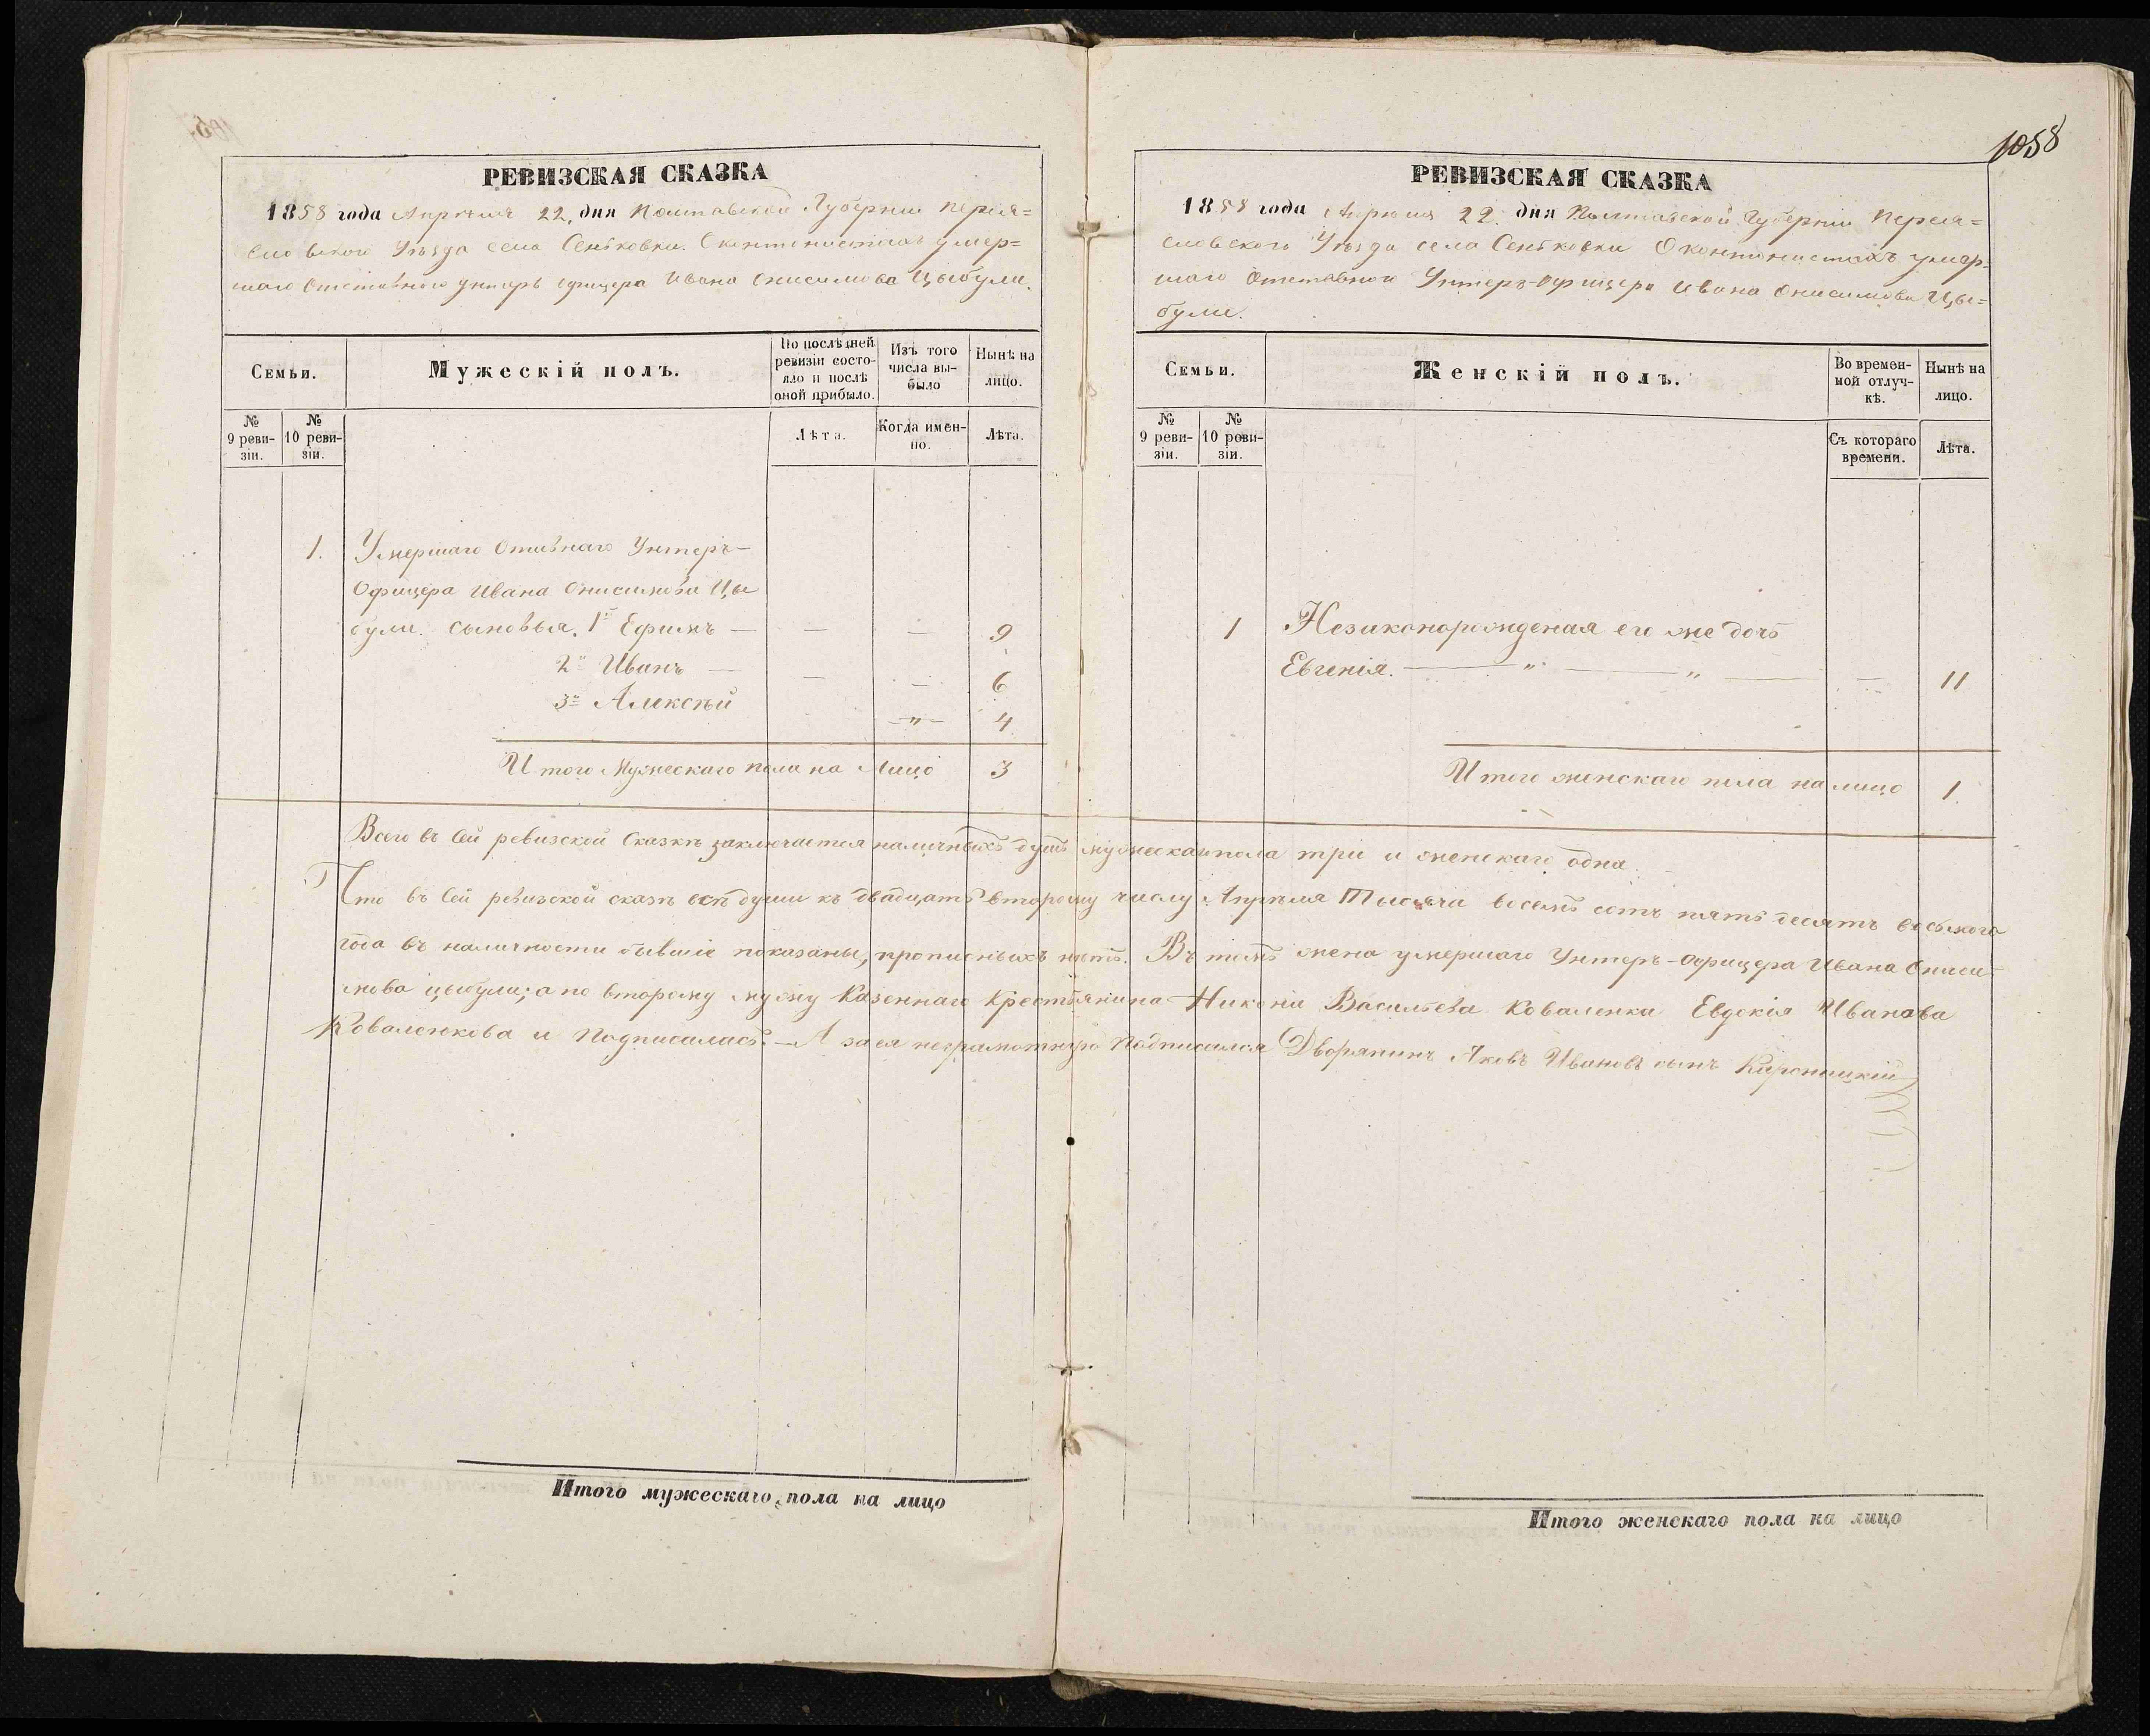 РЕВИЗСКАЯ СКАЗКА
1858 года Апрѣля 22, дня Полтавской Губерніи Перея=
словского Уѣзда села Сеньковки. О контонистахъ умер=
шаго Отставного унтеръ офицера Ивана Онисимова Цыбули.
Семьи.
Мужескій полъ.
По послѣдней ревизіи состояло и послѣ оной прибыло.
Изъ того числа выбыло
Нынѣ на лицо.
№ 9 ревизіи.
№ 10 ревизіи.
Лѣта.
Когда именно.
Лѣта.
1. Умершаго Отивнаго Унтеръ-
Офицера Ивана Онисимова Цы
були. сыновья. 1й Ефимъ — — — 9
2й Иванъ — — — 6
3й Алексѣй — „ — 4
Итого Мужескаго пола на Лицо 3
Итого мужескаго пола на лицо
1058
РЕВИЗСКАЯ СКАЗКА
1858 года Апрѣля 22. дня Полтавской Губерніи Перея=
словского Уѣзда села Сеньковки О контонистахъ умер=
шаго Отставного Унтеръ-Офицера Ивана Онисимова Цы=
були.
Семьи.
Женскій полъ.
Во временной отлучкѣ.
Нынѣ на лицо.
№ 9 ревизіи.
№ 10 ревизіи.
Съ котораго времени.
Лѣта.
1 Незаконорожденая его же дочь
Евгенія. — „ — „ — — 11
Итого женскаго пола на лицо 1.
Всего въ сей ревизской Сказкѣ заключается наличныхъ душъ мужескаго пола три и женскаго одна.
Что въ Сей ревизской сказкѣ всѣ души къ двадцать второму числу Апрѣля Тысяча восемь сотъ пять десятъ восьмого
года въ наличности бывшіе показаны, прописныхъ нѣтъ. Въ томъ жена умершаго Унтеръ-Офицера Ивана Ониси-
мова Цыбули; а по второму мужу Казеннаго Крестьянина Никона Васильева Коваленка Евдокія Иванова
Коваленкова и Подписалась. — А за ея неграмотную Подписался Дворянинъ Яковъ Ивановъ сынъ
Итого женскаго пола на лицо